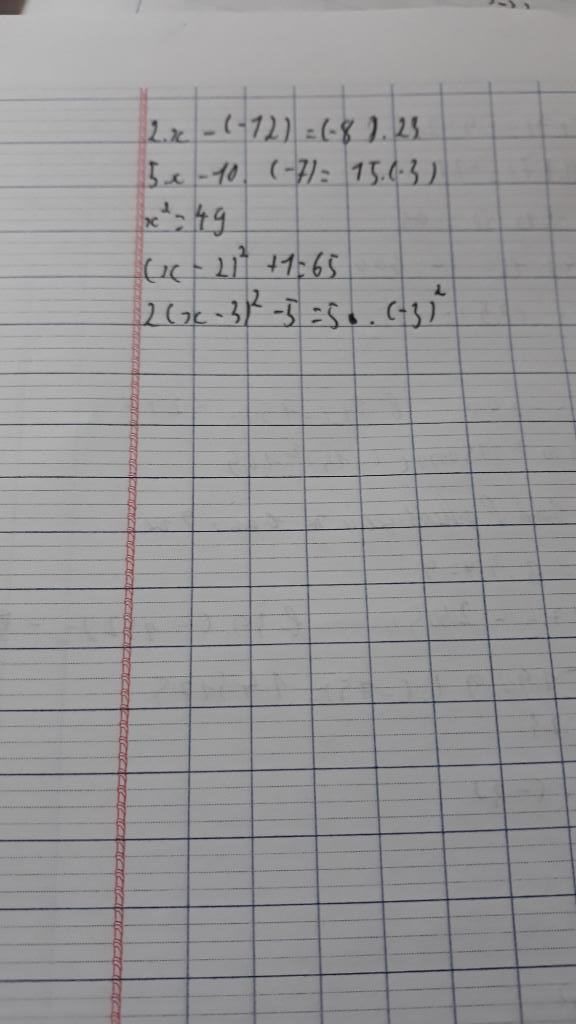 2.x - (-12) = (-8).23
5x - 10.(-7) = 15.(-3)
x² = 49
(x - 2)² + 1 = 65
2(x - 3)² - 5 = 5 . (-3)²